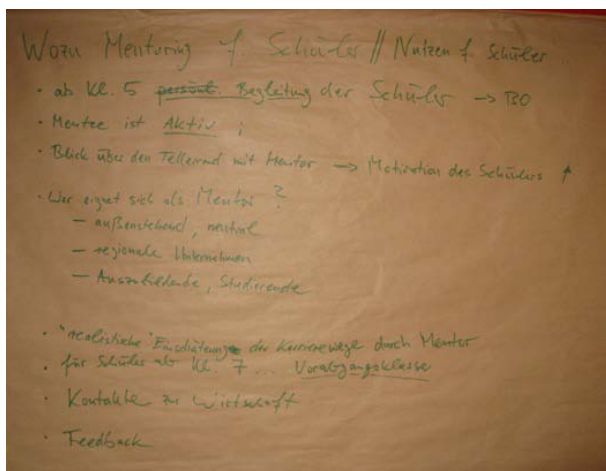 Wozu Mentoring f. Schüler // Nutzen f. Schüler
• ab Kl. 5 persönl. Begleitung der Schüler → BO
• Mentee ist Aktiv ;
• Blick über den Tellerrand mit Mentor → Motivation des Schülers ↑
• Wer eignet sich als Mentor ?
– außenstehend, neutral
– regionale Unternehmen
– Auszubildende, Studierende
• "realistische" Einschätzung der Karrierewege durch Mentor
• für Schüler ab Kl. 7 ... Vorabgangsklasse
• Kontakte zu Wirtschaft
• Feedback